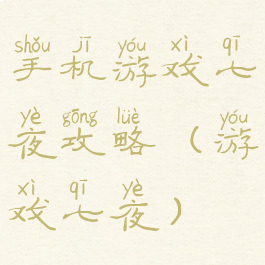 shǒu jī yóu xì qī
手机游戏七
yè gōng lüè yóu
夜攻略（游
xì qī yè
戏七夜）